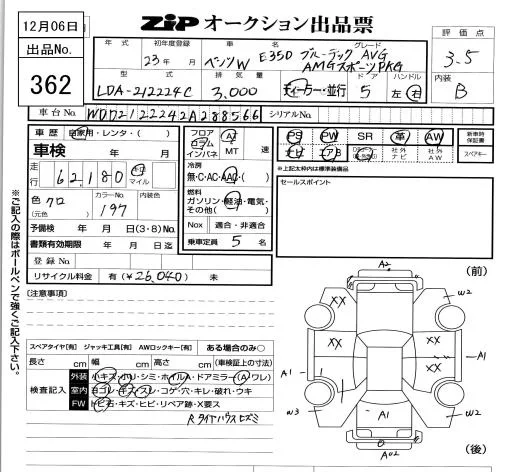 12月06日
出品No.
362
ZIP オークション出品票
評価点
3.5
内装
B
年式 初年度登録 車名 グレード
23年 月 ベンツW E350 ブルーテック AVG
AMGスポーツPKG
型式 排気量 ドア ハンドル
LDA-212224C 3,000 ディーラー・並行 5 左・右
車台No. WDD2122242A288566 シリアルNo.
車歴 自家用・レンタ・( )
車検 年 月
走行 62,180 キロ マイル
色 クロ
(元色)
カラーNo. 197
内装色
予備検 年 月 日(3・8)No.
書類有効期限 年 月 日迄
登録No.
リサイクル料金 有(¥26,040) 未
フロア コラム インパネ
AT
MT 速
冷房
無・C・AC・AAC・( )
燃料
ガソリン・軽油・電気・
その他( )
Nox 適合・非適合
乗車定員 5 名
PS PW SR 革 AW
ナビ エアB 社外ナビ 社外AW
新車時保証書
スペアキー
※上記太枠内は標準装備品
セールスポイント
※ご記入の際はボールペンで強くご記入下さい。
[注意事項]
スペアタイヤ[有] ジャッキ工具[有] AWロックキー[有] ある場合のみ○
長さ cm 幅 cm 高さ cm (車検証上の寸法)
検査記入
外装 小キズ・ホリ・シミ・ホイルA・ドアミラー(A・ワレ)
室内 ヨゴレ・キズ・スレ・コゲ・穴・キレ・破れ・ウキ
FW トビ石・キズ・ヒビ・リペア跡・X要ス
R タイヤハウス ヒズミ
(前)
A2
XX
XX
W2
XX
A1
A1
W3
A1
W2
A02
(後)